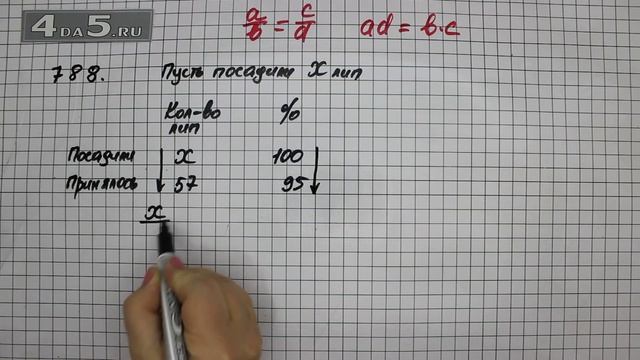 4DA5.RU
a/b = c/d   ad = b·c
788. Пусть посадили x лип
Кол-во лип   %
Посадили   x   100
Принялось   57   95
x